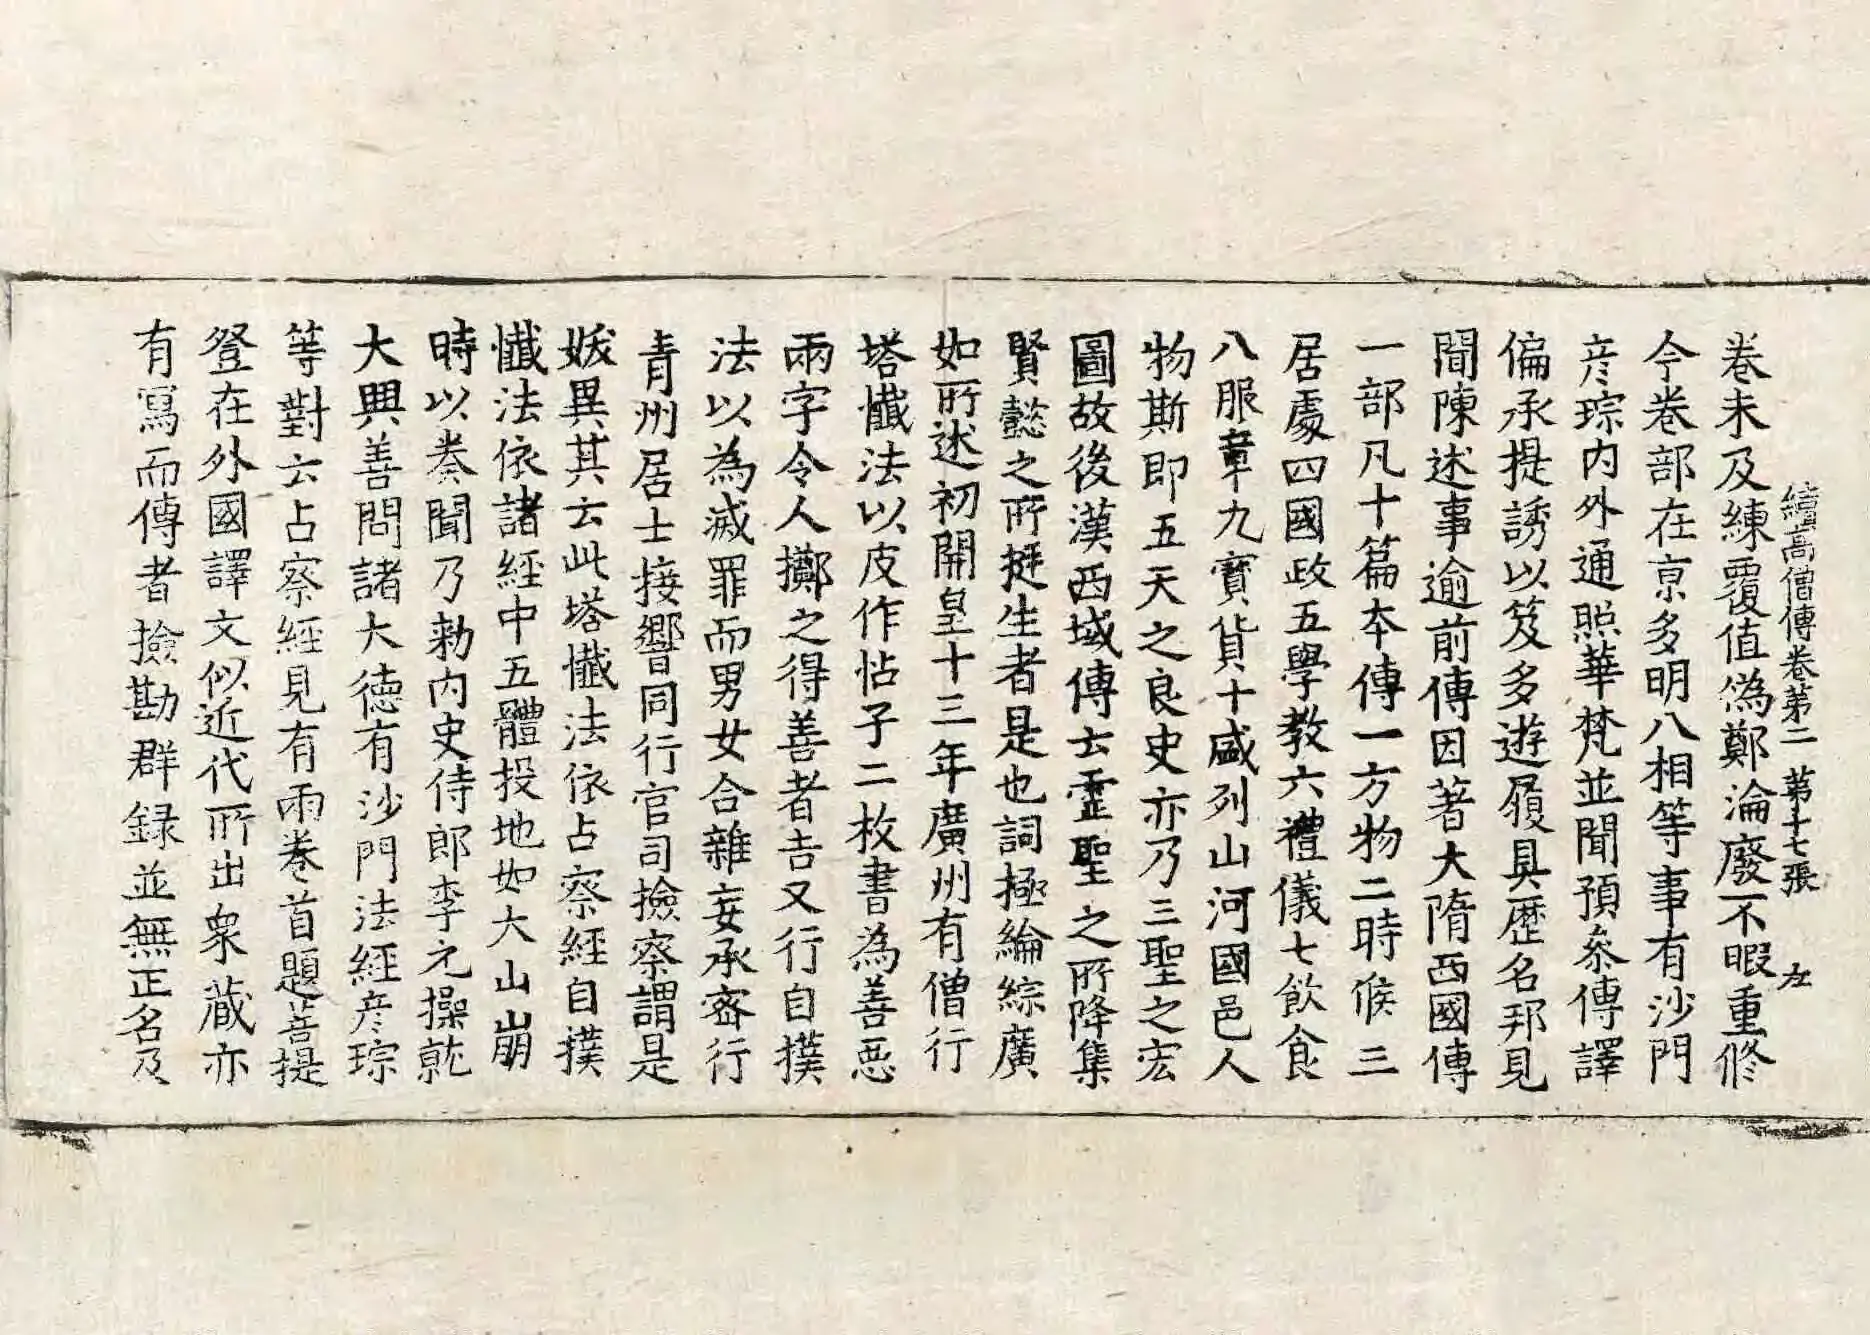 續高僧傳卷第二 第十七張 左
卷未及練覆值偽鄭淪廢不暇重修
今卷部在京多明八相等事有沙門
彦琮内外通照華梵並聞預叅傳譯
偏承提誘以笈多遊履具歷名邦見
聞陳述事逾前傳因著大隋西國傳
一部凡十篇夲傳一方物二時候三
居處四國政五學教六禮儀七飲食
八服章九寳貨十盛列山河國邑人
物斯即五天之良史亦乃三聖之宏
圖故後漢西域傳云靈聖之所降集
賢懿之所挺生者是也詞極綸綜廣
如所述初開皇十三年廣州有僧行
塔懺法以皮作怗子二枚書為善惡
兩字令人擲之得善者吉又行自撲
法以為滅罪而男女合雜妄承密行
青州居士接響同行官司撿察謂是
妖異其云此塔懺法依占察經自撲
懺法依諸經中五體投地如大山崩
時以奏聞乃勑内史侍郎李元操就
大興善問諸大德有沙門法經彦琮
等對云占察經見有兩卷首題菩提
登在外國譯文似近代所出衆藏亦
有寫而傳者撿勘群録並無正名及